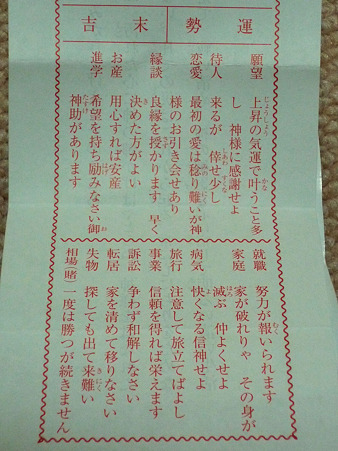 運勢
末吉
願望 上昇の気運で叶うこと多
し 神様に感謝せよ
待人 来るが 倖せ少し
恋愛 最初の愛は稔り難いが神
様のお引き会せあり
縁談 良縁を授かります 早く
決めた方がよい
お産 用心すれば安産
進学 希望を持ち励みなさい御
神助があります
就職 努力が報いられます
家庭 家が破れりゃ その身が
滅ぶ 仲よくせよ
病気 快くなる信神せよ
旅行 注意して旅立てばよし
事業 信頼を得れば栄えます
訴訟 争わず和解しなさい
転居 家を清めて移りなさい
失物 探しても出て来難い
相場(賭) 一度は勝つが続きません